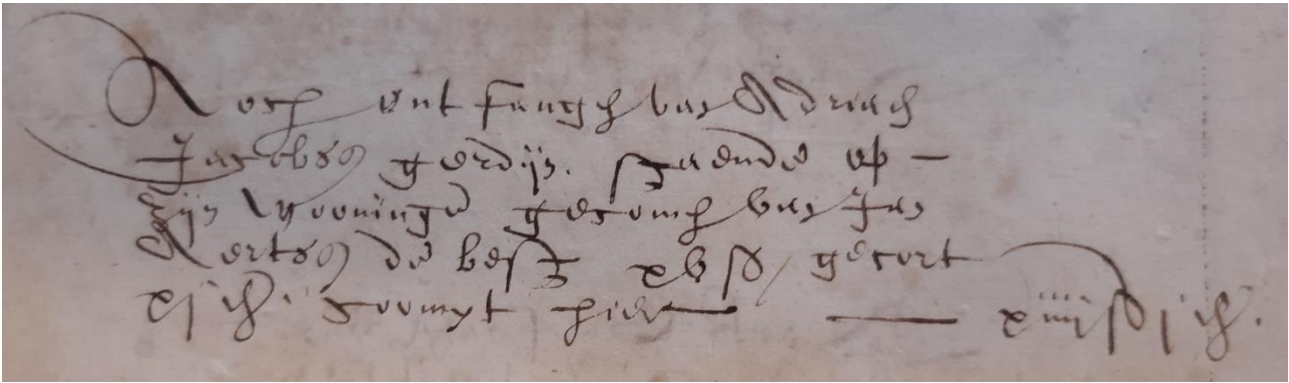 Noch ontfangh van Adriaen
Jacobss gerdijn. staende op —
Zijn Wooninge gecomen van Jan
Aertss de best xv ß / gecort
xj d. Coompt hier — xiiij ß j d.